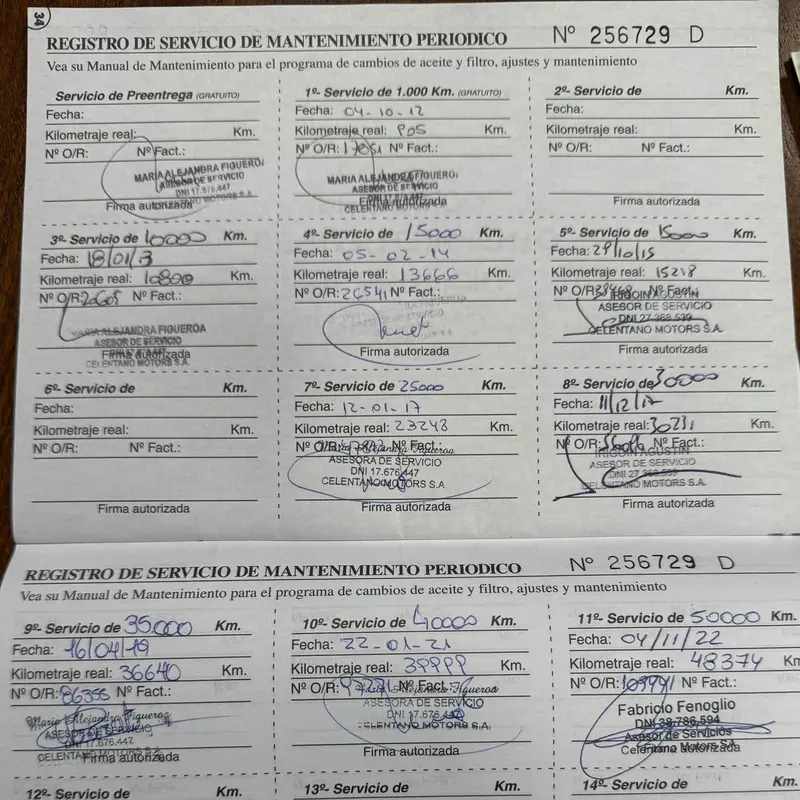 34
REGISTRO DE SERVICIO DE MANTENIMIENTO PERIODICO Nº 256729 D
Vea su Manual de Mantenimiento para el programa de cambios de aceite y filtro, ajustes y mantenimiento
Servicio de Preentrega (GRATUITO)
Fecha:
Kilometraje real: Km.
Nº O/R: Nº Fact.:
MARIA ALEJANDRA FIGUEROA
ASESOR DE SERVICIO
DNI 17.676.447
CELENTANO MOTORS S.A.
Firma autorizada
1º- Servicio de 1.000 Km. (GRATUITO)
Fecha: 04-10-12
Kilometraje real: Km.
Nº O/R: Nº Fact.:
MARIA ALEJANDRA FIGUEROA
ASESOR DE SERVICIO
DNI 17.676.447
CELENTANO MOTORS S.A.
Firma autorizada
2º- Servicio de Km.
Fecha:
Kilometraje real: Km.
Nº O/R: Nº Fact.:
Firma autorizada
3º- Servicio de 10000 Km.
Fecha: 18/01/13
Kilometraje real: 10800 Km.
Nº O/R: Nº Fact.:
MARIA ALEJANDRA FIGUEROA
ASESOR DE SERVICIO
CELENTANO MOTORS S.A.
Firma autorizada
4º- Servicio de 15000 Km.
Fecha: 05-02-14
Kilometraje real: 13666 Km.
Nº O/R: 26541 Nº Fact.:
Firma autorizada
5º- Servicio de 15000 Km.
Fecha: 29/10/15
Kilometraje real: 15218 Km.
Nº O/R: Nº Fact.:
IRIGOIN AGUSTIN
ASESOR DE SERVICIO
DNI 27.368.539
CELENTANO MOTORS S.A.
Firma autorizada
6º- Servicio de Km.
Fecha:
Kilometraje real: Km.
Nº O/R: Nº Fact.:
Firma autorizada
7º- Servicio de 25000 Km.
Fecha: 12-01-17
Kilometraje real: 23248 Km.
Nº O/R: Nº Fact.:
Maria Alejandra Figueroa
ASESORA DE SERVICIO
DNI 17.676.447
CELENTANO MOTORS S.A
Firma autorizada
8º- Servicio de 30000 Km.
Fecha: 11/12/17
Kilometraje real: 30231 Km.
Nº O/R: Nº Fact.:
IRIGOIN AGUSTIN
ASESOR DE SERVICIO
DNI 27.368.539
CELENTANO MOTORS S.A.
Firma autorizada
REGISTRO DE SERVICIO DE MANTENIMIENTO PERIODICO Nº 256729 D
Vea su Manual de Mantenimiento para el programa de cambios de aceite y filtro, ajustes y mantenimiento
9º- Servicio de 35000 Km.
Fecha: 16/04/19
Kilometraje real: 36640 Km.
Nº O/R: 86355 Nº Fact.:
Maria Alejandra Figueroa
ASESORA DE SERVICIO
DNI 17.676.447
CELENTANO MOTORS S.A.
Firma autorizada
10º- Servicio de 40000 Km.
Fecha: 22-01-21
Kilometraje real: 39999 Km.
Nº O/R: Nº Fact.:
Maria Alejandra Figueroa
ASESORA DE SERVICIO
DNI 17.676.447
CELENTANO MOTORS S.A.
Firma autorizada
11º- Servicio de 50000 Km.
Fecha: 04/11/22
Kilometraje real: 48374 Km
Nº O/R: Nº Fact.:
Fabricio Fenoglio
DNI 38.786.594
Asesor de Servicios
Celentano Motors S.A
Firma autorizada
12º- Servicio de Km.
13º- Servicio de Km.
14º- Servicio de Km.